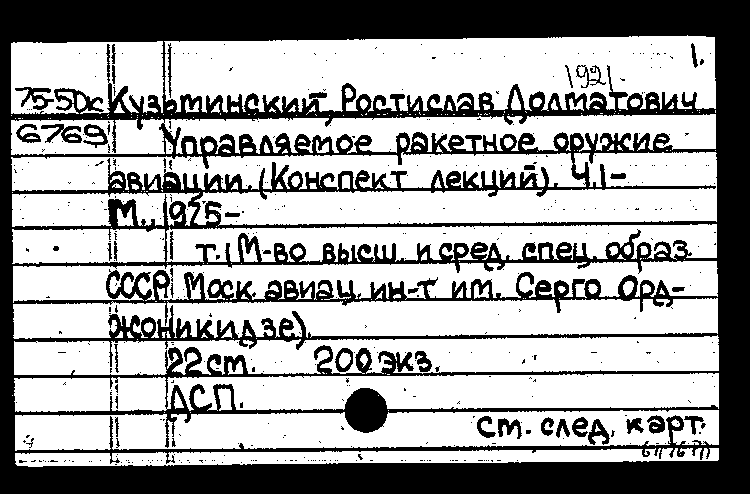 1.
1921.
75-5Дк Кузьминский, Ростислав Долматович
6769 Управляемое ракетное оружие
авиации. (Конспект лекций). Ч.1-
М., 1975-
т. (М-во высш. и сред. спец. образ.
СССР. Моск. авиац. ин-т им. Серго Орд-
жоникидзе).
22 см. 200 экз.
ДСП.
см. след. карт.